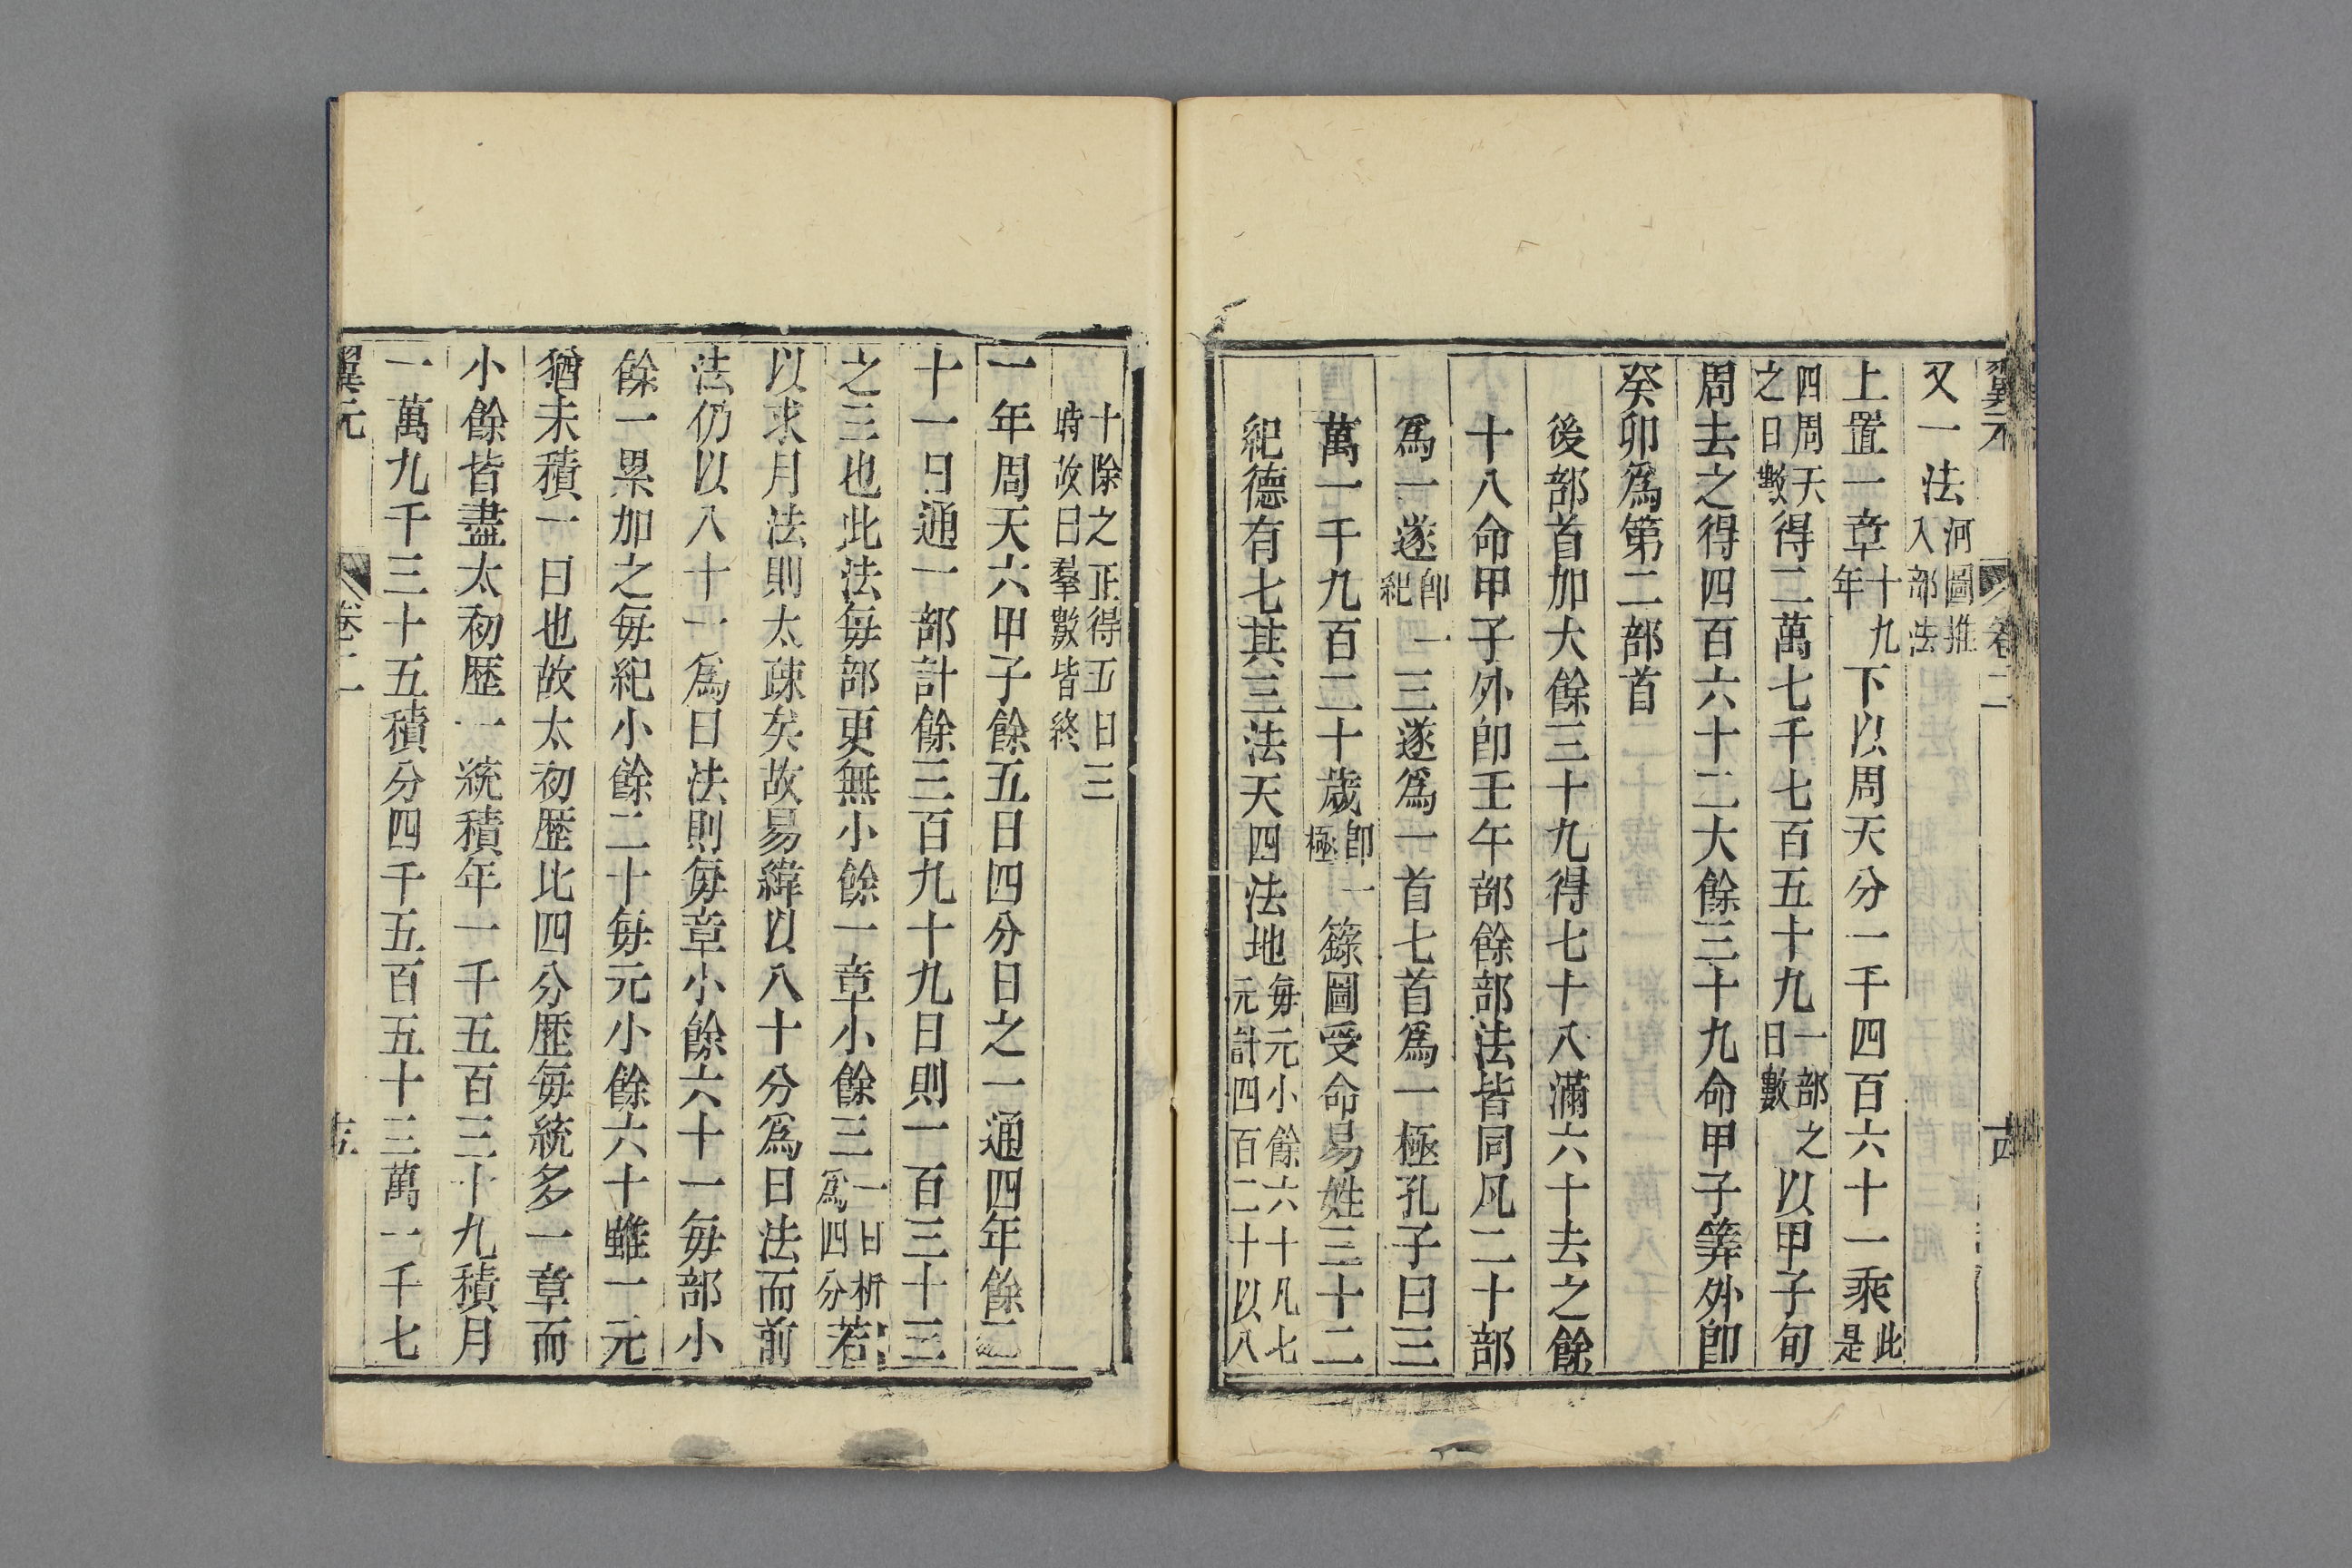 翼元 卷二 古
又一法河圖推入部法
上置一章十九年下以周天分一千四百六十一乘此是
四周天之日數得二萬七千七百五十九一部之日數以甲子旬
周去之得四百六十二大餘三十九命甲子筭外卽
癸卯爲第二部首
後部首加大餘三十九得七十八滿六十去之餘
十八命甲子外卽壬午部餘部法皆同凡二十部
爲一遂卽一紀三遂爲一首七首爲一極孔子曰三
萬一千九百二十歲卽一極籙圖受命易姓三十二
紀德有七其三法天四法地每元小餘六十凡七元計四百二十以八
十除之正得五日三時故曰羣數皆終
一年周天六甲子餘五日四分日之一通四年餘二
十一日通一部計餘三百九十九日則一百三十三
之三也此法每部更無小餘一章小餘三一日析爲四分若
以求月法則太疎矣故易緯以八十分爲日法而前
法仍以八十一爲日法則每章小餘六十一每部小
餘一累加之每紀小餘二十每元小餘六十雖一元
猶未積一日也故太初歷比四分歷每統多一章而
小餘皆盡太初歷一統積年一千五百三十九積月
一萬九千三十五積分四千五百五十三萬一千七
翼元 卷二